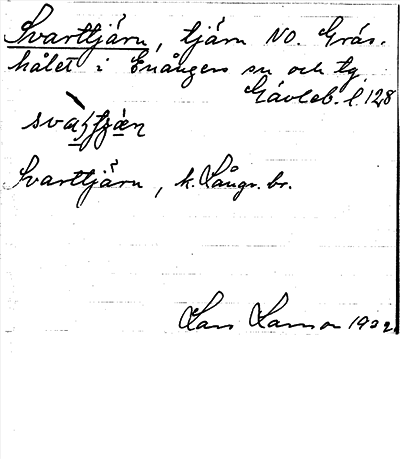 Svarttjärn, tjärn NO. Grås-
hålet i Enångers sn och tg.
Gävleb. l. 128
Svarttjärn, k. Långv. br.
Lars Larsson 1932